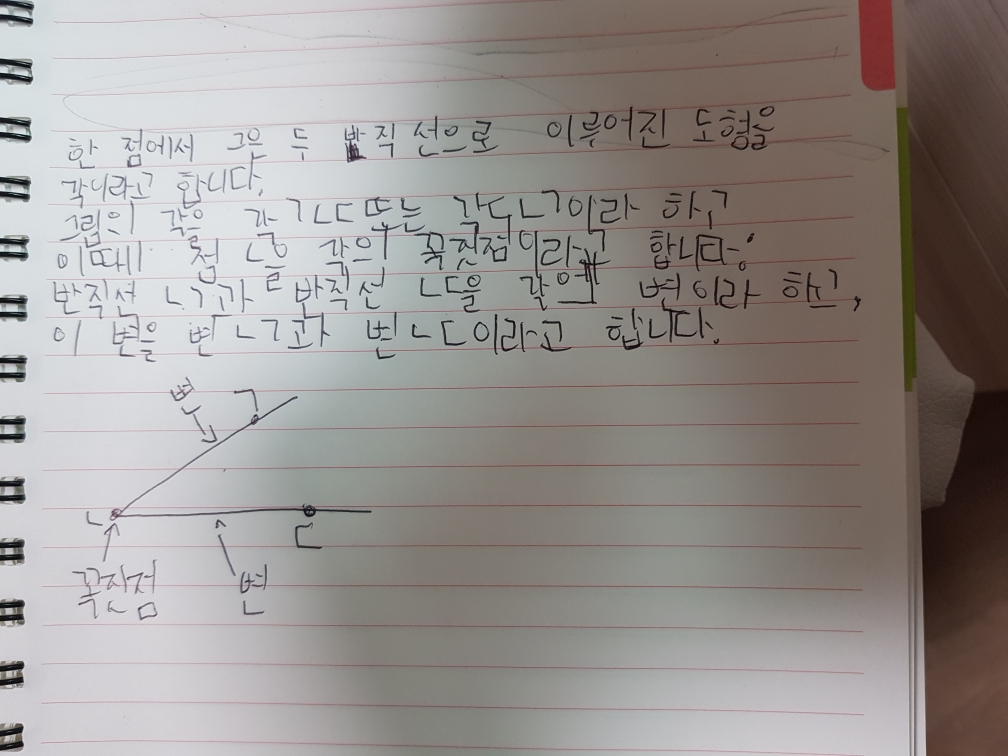 한 점에서 그은 두 반직선으로 이루어진 도형을
각이라고 합니다.
그림의 각은 각ㄱㄴㄷ또는 각ㄷㄴㄱ이라 하고
이때 점 ㄴ을 각의 꼭짓점이라고 합니다.
반직선 ㄴㄱ과 반직선 ㄴㄷ을 각의 변이라 하고,
이 변을 변ㄴㄱ과 변ㄴㄷ이라고 합니다.
변 ㄱ
ㄴ
ㄷ
꼭지점 변